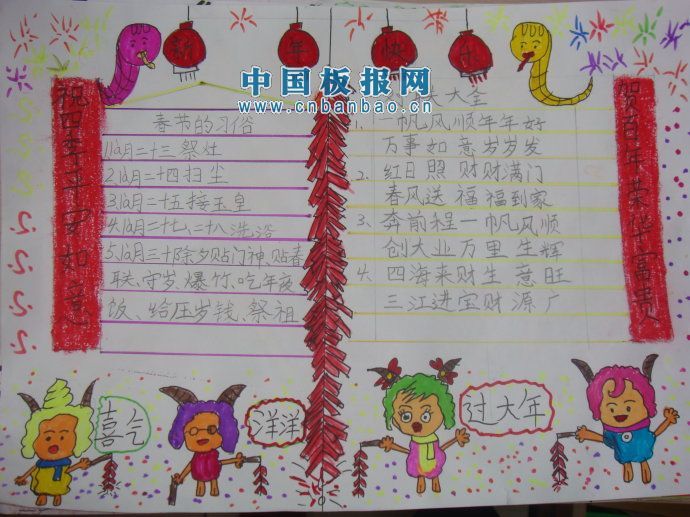 新年快乐
中国板报网
www.cnbanbao.cn
祝四季平安如意
春节的习俗
1.腊月二十三祭灶
2.腊月二十四扫尘
3.腊月二十五接玉皇
4.腊月二十七、二十八洗浴
5.腊月三十除夕贴门神、贴春
联、守岁、爆竹、吃年夜
饭、给压岁钱、祭祖
大全
1、一帆风顺年年好
万事如意岁岁发
2、红日照财财满门
春风送福福到家
3、奔前程一帆风顺
创大业万里生辉
4、四海来财生意旺
三江进宝财源广
贺百年荣华富贵
喜气
洋洋
过大年